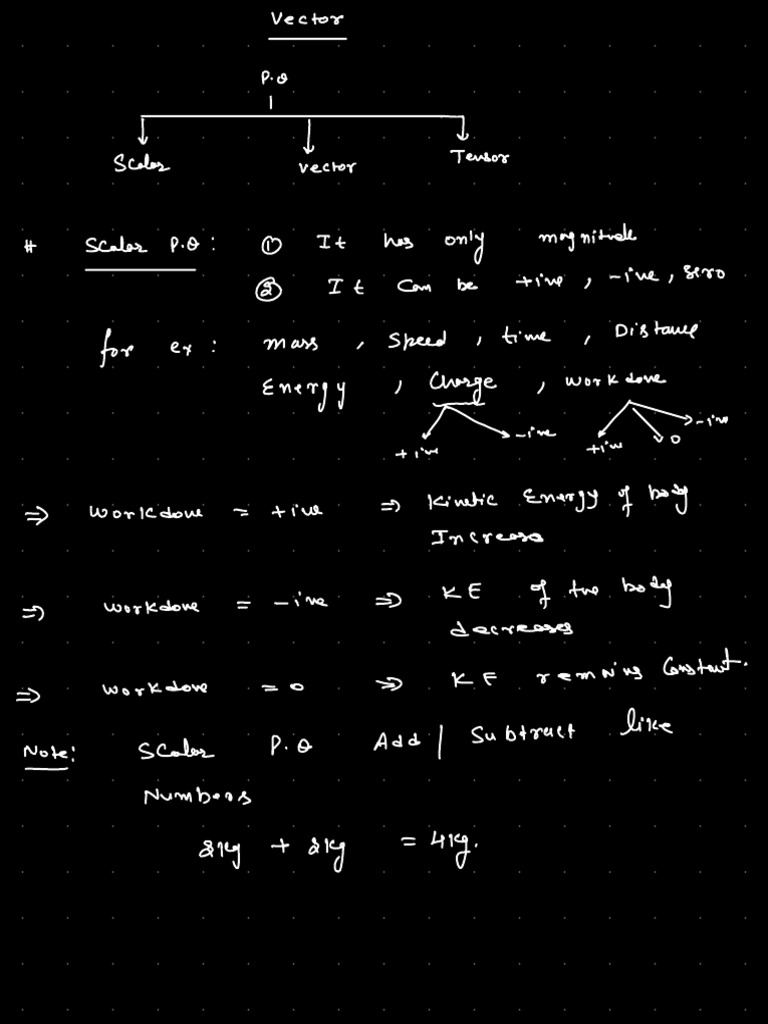 Vector
P.Q
Scalar vector Tensor
# Scalar P.Q : ① It has only magnitude
② It can be +ive, -ive, zero
for ex : mass, speed, time, Distance
Energy, Charge, workdone
+ive -ive +ive 0 -ive
⇒ workdone = +ive ⇒ Kinetic Energy of body
Increases
⇒ workdone = -ive ⇒ KE of the body
decreases
⇒ workdone = 0 ⇒ KE remains Constant.
Note: Scalar P.Q Add / Subtract like
Numbers
2kg + 2kg = 4kg.